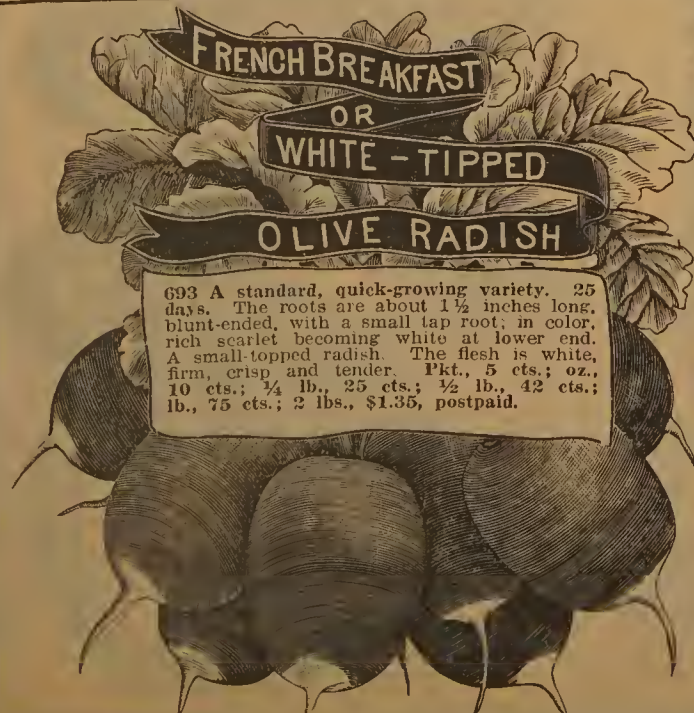 FRENCH BREAKFAST
OR
WHITE-TIPPED
OLIVE RADISH
693 A standard, quick-growing variety. 25
days. The roots are about 1½ inches long,
blunt-ended, with a small tap root; in color,
rich scarlet becoming white at lower end.
A small-topped radish. The flesh is white,
firm, crisp and tender. Pkt., 5 cts.; oz.,
10 cts.; ¼ lb., 25 cts.; ½ lb., 42 cts.;
lb., 75 cts.; 2 lbs., $1.35, postpaid.